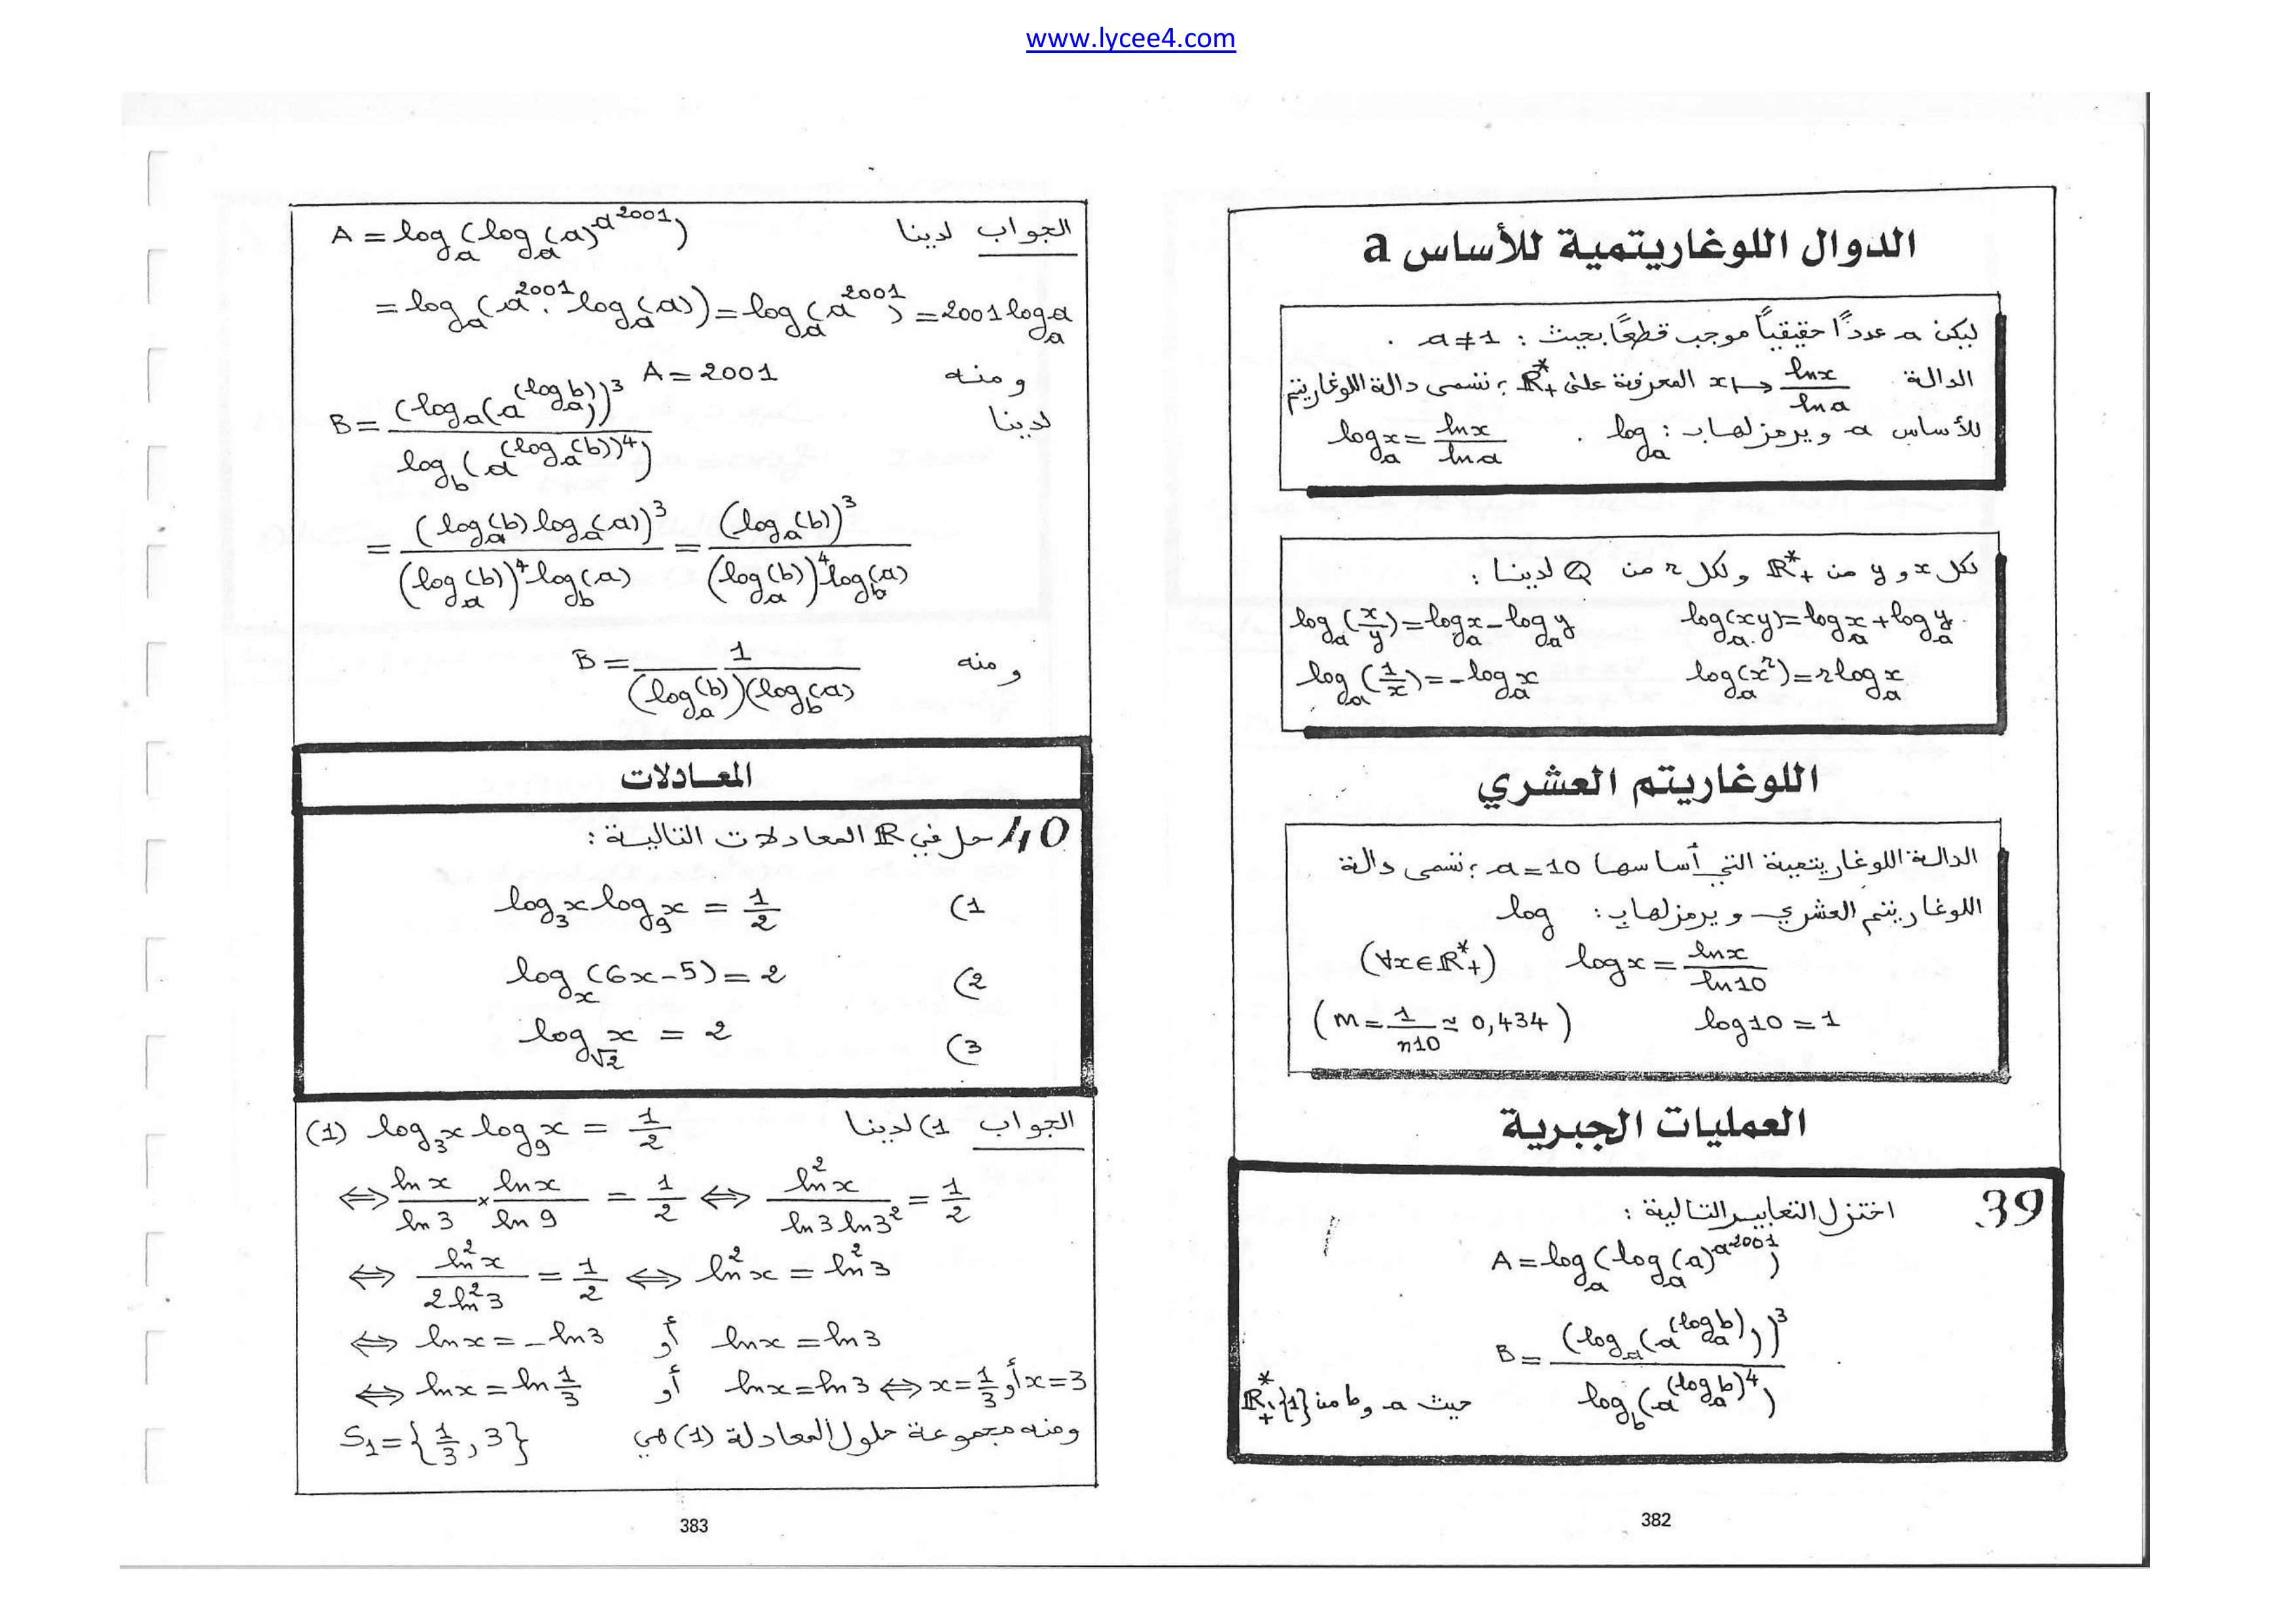 www.lycee4.com
الدوال اللوغاريتمية للأساس a
ليكن a عددًا حقيقيًا موجب قطعًا بحيث : a ≠ 1 .
الدالة x ↦ lnx/lna المعرفة على ℝ*₊ ؛ تسمى دالة اللوغاريتم
للأساس a ويرمز لها بـ : logₐ . logₐx = lnx/lna
لكل x و y من ℝ*₊ ولكل r من ℚ لدينا :
logₐ(xy)=logₐx+logₐy logₐ(x/y)=logₐx-logₐy
logₐ(xʳ)=r logₐx logₐ(1/x)=-logₐx
اللوغاريتم العشري
الدالة اللوغاريتمية التي أساسها a=10 ؛ تسمى دالة
اللوغاريتم العشري ويرمز لها بـ : log
logx = lnx/ln10 (∀x∈ℝ*₊)
log10 = 1 (m = 1/n10 ≃ 0,434)
العمليات الجبرية
39 اختزل التعابير التالية :
A = logₐ(logₐ(a)^a^2001)
B = (logₐ(a^(logₐb)))³ / log_b(a^(logₐb)⁴)
حيث a و b من ℝ*₊\{1}
382
الجواب لدينا A = logₐ(logₐ(a)^a^2001)
= logₐ(a^2001 . logₐ(a)) = logₐ(a^2001) = 2001 logₐa
ومنه A = 2001
لدينا B = (logₐ(a^(logₐb)))³ / log_b(a^(logₐ(b))⁴)
= (logₐ(b) logₐ(a))³ / (logₐ(b))⁴ log_b(a) = (logₐ(b))³ / (logₐ(b))⁴ log_b(a)
ومنه B = 1 / (logₐ(b))(log_b(a)
المعادلات
40 حل في ℝ المعادلات التالية :
1) log₃x log₉x = 1/2
2) log_x(6x-5) = 2
3) log_√2 x = 2
الجواب 1) لدينا (1) log₃x log₉x = 1/2
⇔ lnx/ln3 × lnx/ln9 = 1/2 ⇔ ln²x / ln3 ln3² = 1/2
⇔ ln²x / 2ln²3 = 1/2 ⇔ ln²x = ln²3
⇔ lnx = -ln3 أو lnx = ln3
⇔ lnx = ln 1/3 أو lnx = ln3 ⇔ x = 1/3 أو x = 3
ومنه مجموعة حلول المعادلة (1) هي S₁ = {1/3 , 3}
383